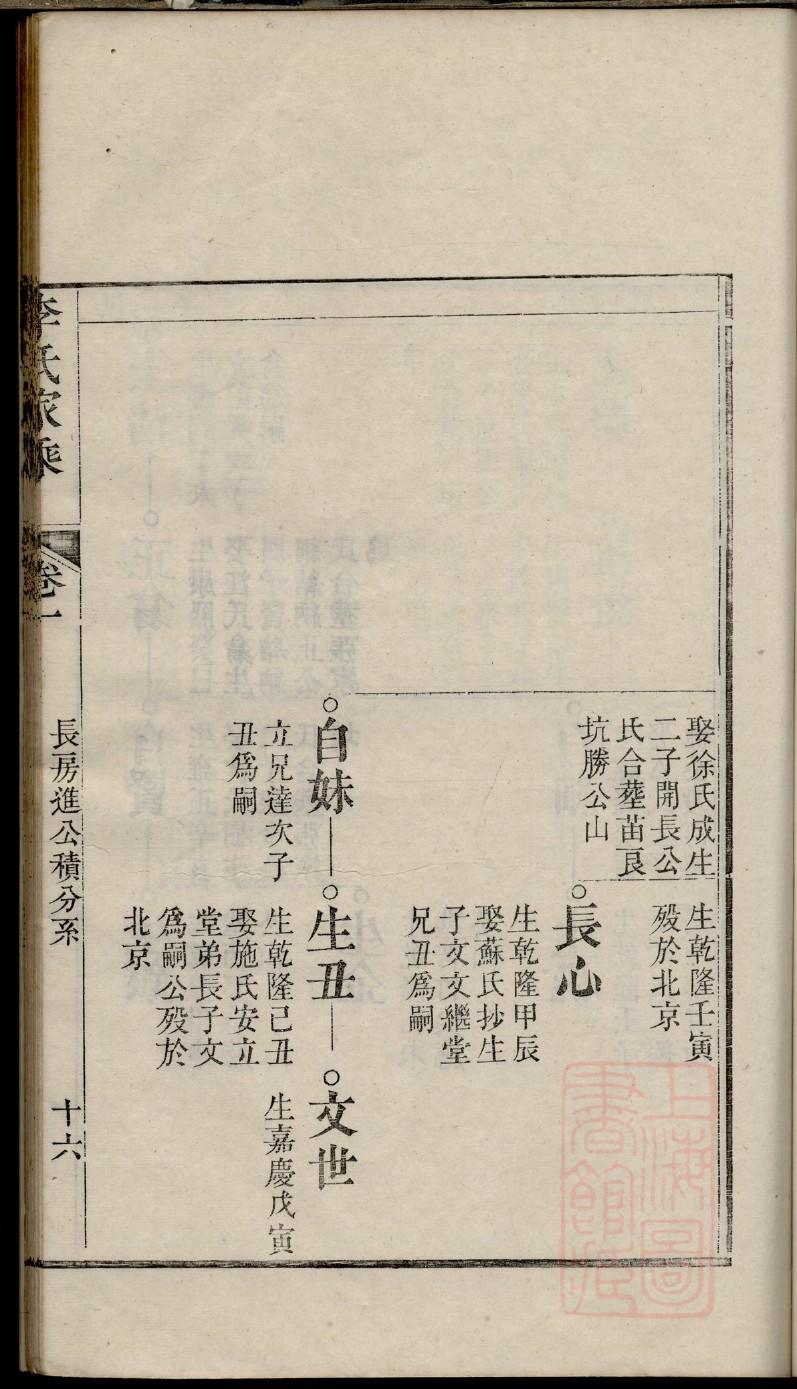 娶徐氏成生
二子開長公
氏合塟苗良
坑勝公山
生乾隆壬寅
殁於北京
長心
生乾隆甲辰
娶蘇氏抄生
子文文繼堂
兄丑爲嗣
自妹
立兄達次子
丑爲嗣
生丑
生乾隆己丑
娶施氏安立
堂弟長子文
爲嗣公殁於
北京
文世
生嘉慶戊寅
李氏家乘
卷一
長房進公積分系
十六
上海圖
書館藏